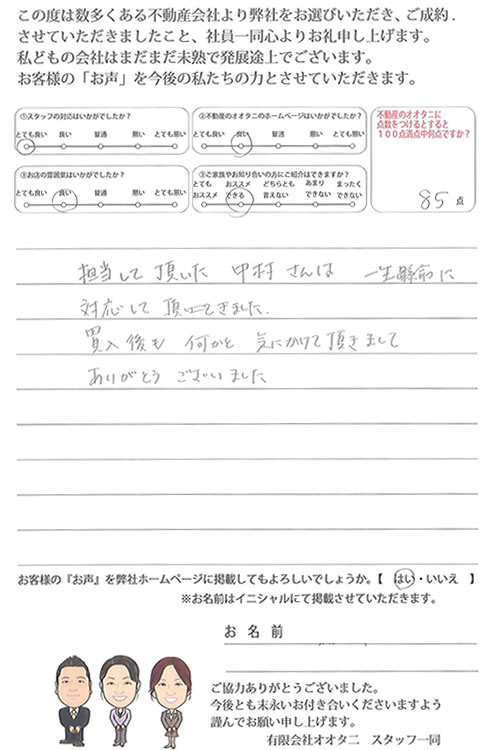 この度は数多くある不動産会社より弊社をお選びいただき、ご成約.
させていただきましたこと、社員一同心よりお礼申し上げます。
私どもの会社はまだまだ未熟で発展途上でございます。
お客様の「お声」を今後の私たちの力とさせていただきます。
①スタッフの対応はいかがでしたか?
とても良い 良い 普通 悪い とても悪い
②不動産のオオタニのホームページはいかがでしたか?
とても良い 良い 普通 悪い とても悪い
不動産のオオタニに
点数をつけるとすると
100点満点中何点ですか?
85 点
③お店の雰囲気はいかがでしたか?
とても良い 良い 普通 悪い とても悪い
⑤ご家族やお知り合いの方にご紹介はできますか?
とても オススメ どちらとも あまり まったく
オススメ できる 言えない できない できない
担当して頂いた 中村さんは 一生懸命に
対応して頂 できました.
買入後も 何かと 気にかけて頂きまして
ありがとう ございました
お客様の『お声』を弊社ホームページに掲載してもよろしいでしょうか。【 はい・いいえ 】
※お名前はイニシャルにて掲載させていただきます。
お 名 前
ご協力ありがとうございました。
今後とも末永いお付き合いくださいますよう
謹んでお願い申し上げます。
有限会社オオタニ スタッフ一同